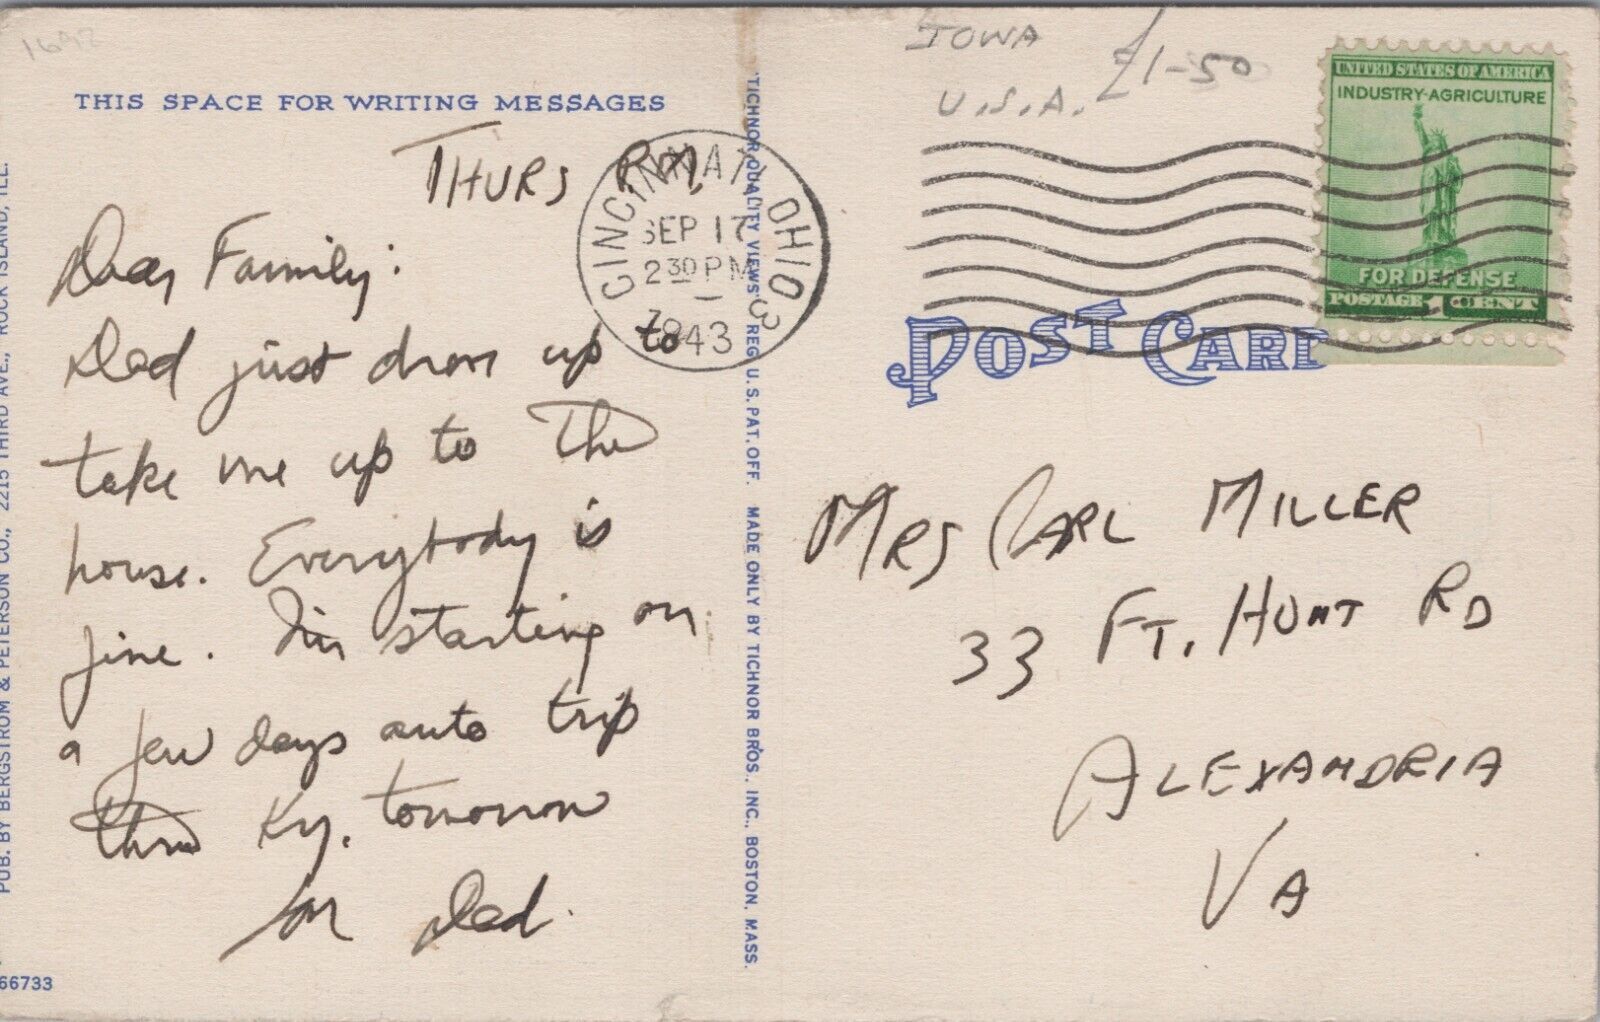 1692
THIS SPACE FOR WRITING MESSAGES
THURS P.M,
Dear Family:
Dad just drove up to
take me up to the
house. Everybody is
fine. I'm starting on
a few days auto trip
thru Ky. tomorrow
Dad.
66733
PUB. BY BERGSTROM & PETERSON CO., 2215 THIRD AVE., ROCK ISLAND, ILL.
CINCINNATI, OHIO 3
SEP 17
2 30 PM
1943
"TICHNOR QUALITY VIEWS" REG. U.S. PAT. OFF. MADE ONLY BY TICHNOR BROS. INC., BOSTON, MASS.
IOWA
U.S.A. £1-50
UNITED STATES OF AMERICA
INDUSTRY-AGRICULTURE
FOR DEFENSE
POSTAGE 1 CENT
POST CARD
MRS CARL MILLER
33 FT. HUNT RD
ALEXANDRIA
VA